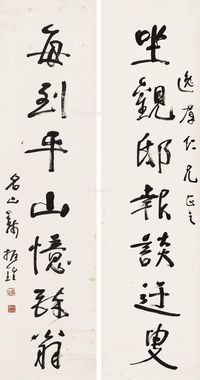 逸羣仁兄正之
坐觀邸報談迂叟
每到平山憶醉翁
名山錢振鍠